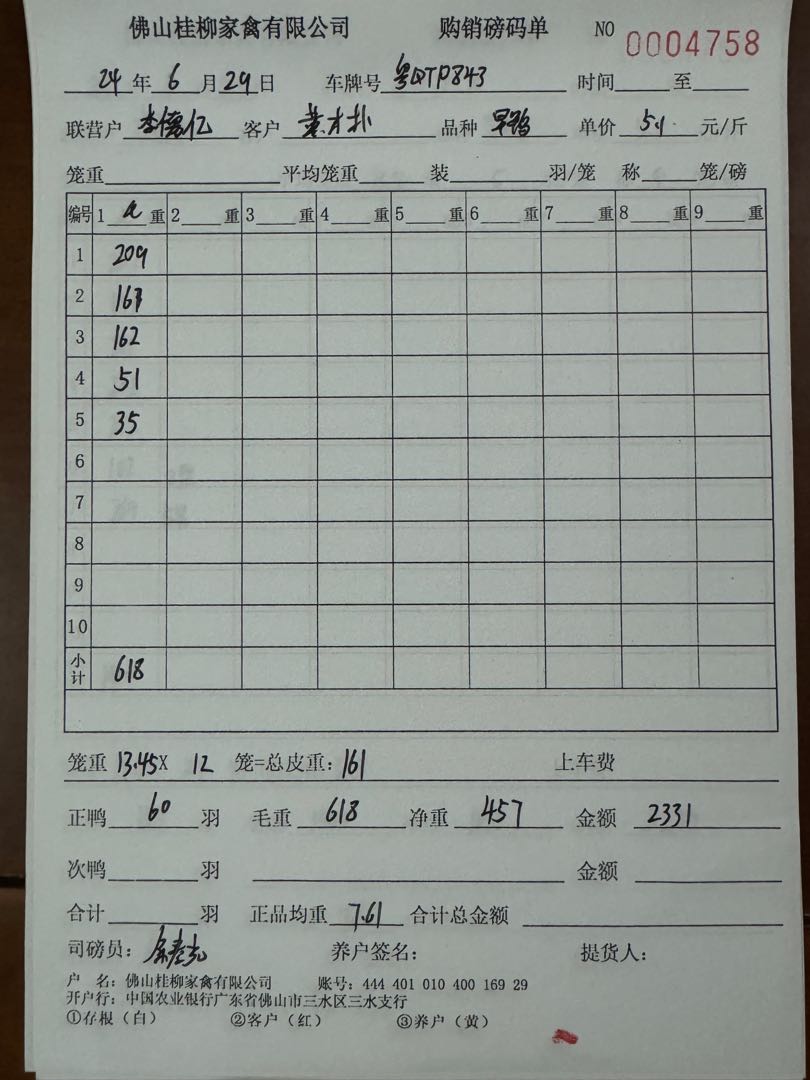 佛山桂柳家禽有限公司 购销磅码单 NO 0004758
24年6月29日 车牌号 粤QTP843 时间 至
联营户 李德亿 客户 黄才扑 品种 单价 5.1 元/斤
笼重 平均笼重 装 羽/笼 称 笼/磅
编号 1 重 2 重 3 重 4 重 5 重 6 重 7 重 8 重 9 重
1 209
2 167
3 162
4 51
5 35
6
7
8
9
10
小计 618
笼重 13.45X 12 笼=总皮重:161 上车费
正鸭 60 羽 毛重 618 净重 457 金额 2331
次鸭 羽 金额
合计 羽 正品均重 7.61 合计总金额
司磅员: 养户签名: 提货人:
户 名: 佛山桂柳家禽有限公司 账号: 444 401 010 400 169 29
开户行: 中国农业银行广东省佛山市三水区三水支行
①存根(白) ②客户(红) ③养户(黄)